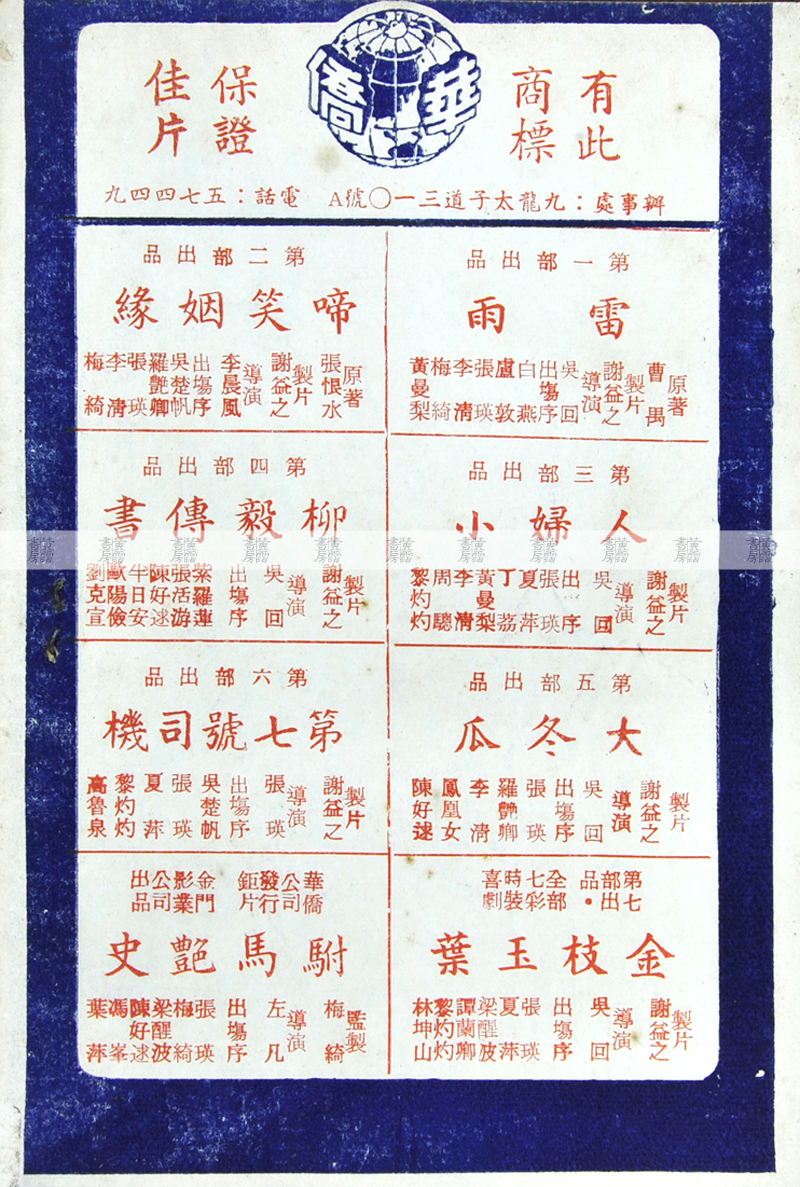 有此
商標
華僑
保證
佳片
辦事處：九龍太子道三一〇號A　電話：五七四四九
第一部出品
雷雨
原著
曹禺
製片
謝益之
導演
吳回
出塲序
白燕
盧敦
張瑛
李清
梅綺
黃曼梨
第二部出品
啼笑姻緣
原著
張恨水
製片
謝益之
導演
李晨風
出塲序
吳楚帆
羅艷卿
張瑛
李清
梅綺
第三部出品
人婦小
製片
謝益之
導演
吳回
出 序
張瑛
夏萍
丁荔
黃曼梨
李清
周驄
黎灼灼
第四部出品
柳毅傳書
製片
謝益之
導演
吳回
出塲序
紫羅蓮
張活游
陳好逑
半日安
歐陽儉
劉克宣
第五部出品
大冬瓜
製片
謝益之
導演
吳回
出塲序
張瑛
羅艷卿
李清
鳳凰女
陳好逑
第六部出品
第七號司機
製片
謝益之
導演
張瑛
出塲序
吳楚帆
張瑛
夏萍
黎灼灼
高魯泉
第七
部出
品•
全部
七彩
時裝
喜劇
金枝玉葉
製片
謝益之
導演
吳回
出塲序
張瑛
夏萍
梁醒波
譚蘭卿
黎灼灼
林坤山
華僑
公司
發行
鉅片
金門
影業
公司
出品
駙馬艷史
監製
梅綺
導演
左凡
出塲序
張瑛
梅綺
梁醒波
陳好逑
馮峯
葉萍